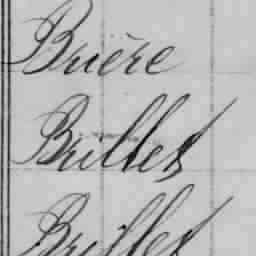 Brière
Brillet
Brillet